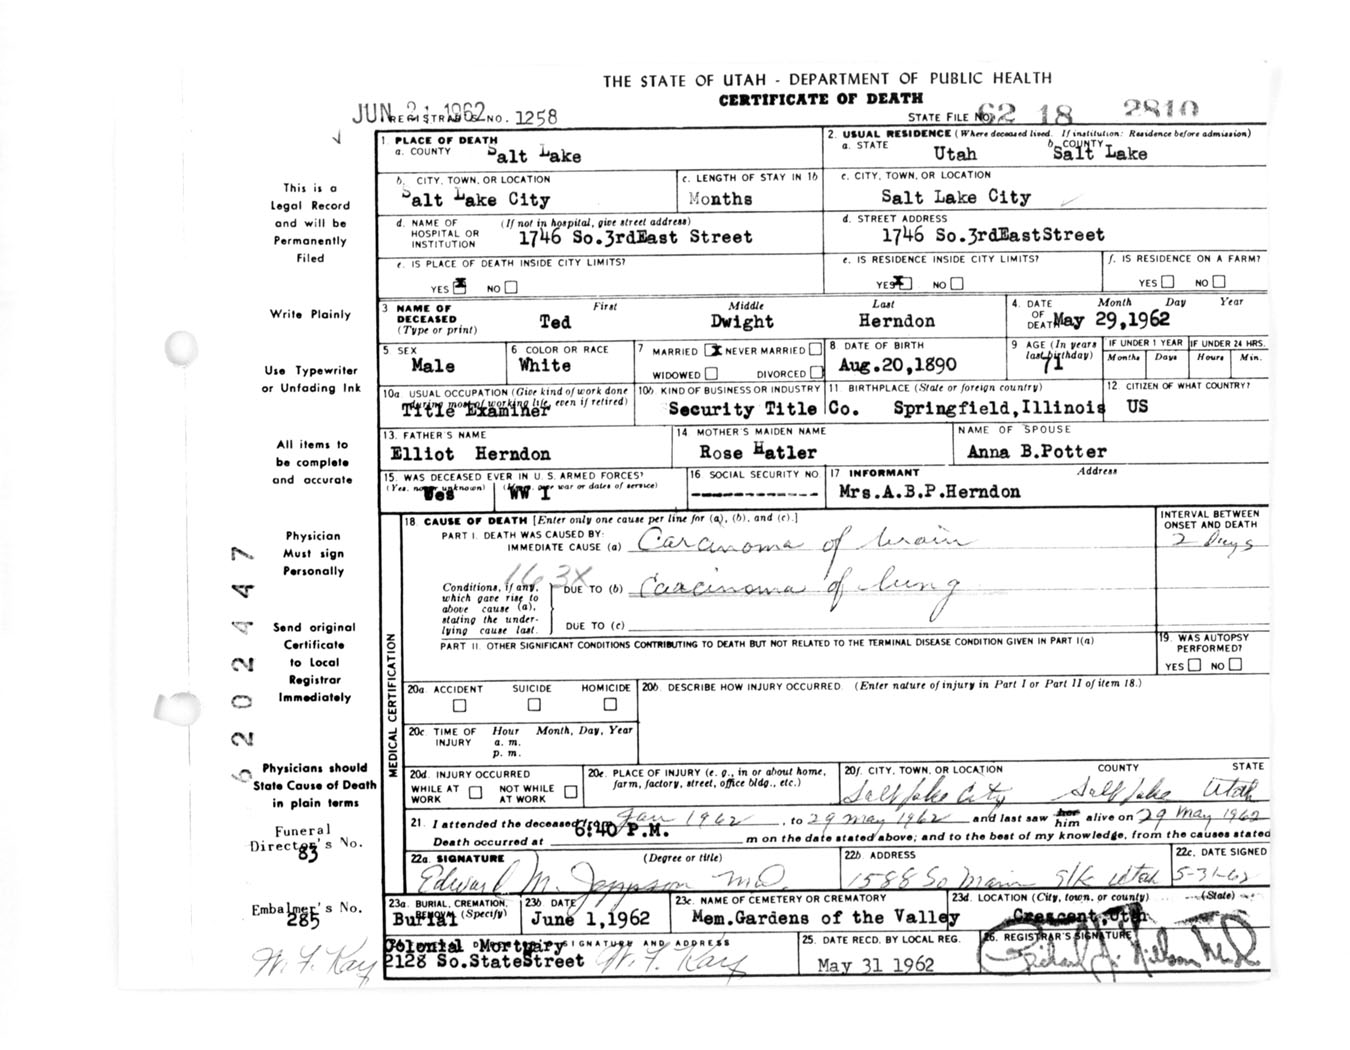 THE STATE OF UTAH - DEPARTMENT OF PUBLIC HEALTH
CERTIFICATE OF DEATH
JUN 21 1962 REGISTRAR'S NO. 1258
STATE FILE NO. 62 18 2810
This is a
Legal Record
and will be
Permanently
Filed
Write Plainly
Use Typewriter
or Unfading Ink
All items to
be complete
and accurate
Physician
Must sign
Personally
Send original
Certificate
to Local
Registrar
Immediately
Physicians should
State Cause of Death
in plain terms
Funeral
Director's No.
83
Embalmer's No.
285
W. F. Kay
6202447
1. PLACE OF DEATH
a. COUNTY Salt Lake
2. USUAL RESIDENCE (Where deceased lived. If institution: Residence before admission)
a. STATE Utah b. COUNTY Salt Lake
b. CITY, TOWN, OR LOCATION
Salt Lake City
c. LENGTH OF STAY IN 1b
Months
c. CITY, TOWN, OR LOCATION
Salt Lake City
d. NAME OF HOSPITAL OR INSTITUTION (If not in hospital, give street address)
1746 So.3rdEast Street
d. STREET ADDRESS
1746 So.3rdEastStreet
e. IS PLACE OF DEATH INSIDE CITY LIMITS?
YES X NO
e. IS RESIDENCE INSIDE CITY LIMITS?
YES X NO
f. IS RESIDENCE ON A FARM?
YES NO
3 NAME OF DECEASED (Type or print)
First Middle Last
Ted Dwight Herndon
4. DATE OF DEATH Month Day Year
May 29,1962
5 SEX
Male
6 COLOR OR RACE
White
7 MARRIED X NEVER MARRIED
WIDOWED DIVORCED
8 DATE OF BIRTH
Aug.20,1890
9 AGE (In years last birthday)
71
IF UNDER 1 YEAR IF UNDER 24 HRS.
Months Days Hours Min.
10a. USUAL OCCUPATION (Give kind of work done during most of working life, even if retired)
Title Examiner
10b. KIND OF BUSINESS OR INDUSTRY
Security Title Co.
11 BIRTHPLACE (State or foreign country)
Springfield,Illinois
12 CITIZEN OF WHAT COUNTRY?
US
13. FATHER'S NAME
Elliot Herndon
14 MOTHER'S MAIDEN NAME
Rose Hatler
NAME OF SPOUSE
Anna B.Potter
15. WAS DECEASED EVER IN U. S. ARMED FORCES?
(Yes, no, or unknown) (If yes, give war or dates of service)
Yes WW I
16 SOCIAL SECURITY NO
-------------
17 INFORMANT Address
Mrs.A.B.P.Herndon
MEDICAL CERTIFICATION
18. CAUSE OF DEATH [Enter only one cause per line for (a), (b), and (c).]
PART I. DEATH WAS CAUSED BY:
IMMEDIATE CAUSE (a) Carcinoma of brain
INTERVAL BETWEEN ONSET AND DEATH
2 Days
163X
Conditions, if any, which gave rise to above cause (a), stating the underlying cause last.
DUE TO (b) Carcinoma of lung
DUE TO (c)
PART II. OTHER SIGNIFICANT CONDITIONS CONTRIBUTING TO DEATH BUT NOT RELATED TO THE TERMINAL DISEASE CONDITION GIVEN IN PART I(a)
19. WAS AUTOPSY PERFORMED?
YES NO
20a. ACCIDENT SUICIDE HOMICIDE
20b. DESCRIBE HOW INJURY OCCURRED. (Enter nature of injury in Part I or Part II of item 18.)
20c. TIME OF INJURY Hour Month, Day, Year
a. m.
p. m.
20d. INJURY OCCURRED
WHILE AT WORK NOT WHILE AT WORK
20e. PLACE OF INJURY (e. g., in or about home, farm, factory, street, office bldg., etc.)
20f. CITY, TOWN, OR LOCATION COUNTY STATE
Salt Lake City Salt Lake Utah
21. I attended the deceased from Jan 1962, to 29 May 1962 and last saw her him alive on 29 May 1962
Death occurred at 6:40 P.M. m on the date stated above; and to the best of my knowledge, from the causes stated
22a. SIGNATURE (Degree or title)
Edward M. Jeppson M.D.
22b. ADDRESS
1588 So Main Slk Utah
22c. DATE SIGNED
5-31-62
23a. BURIAL, CREMATION, REMOVAL (Specify)
Burial
23b. DATE
June 1,1962
23c. NAME OF CEMETERY OR CREMATORY
Mem.Gardens of the Valley
23d. LOCATION (City, town, or county) (State)
Crescent,Utah
SIGNATURE AND ADDRESS
Colonial Mortuary
2128 So.StateStreet W. F. Kay
25. DATE RECD. BY LOCAL REG.
May 31 1962
26. REGISTRAR'S SIGNATURE